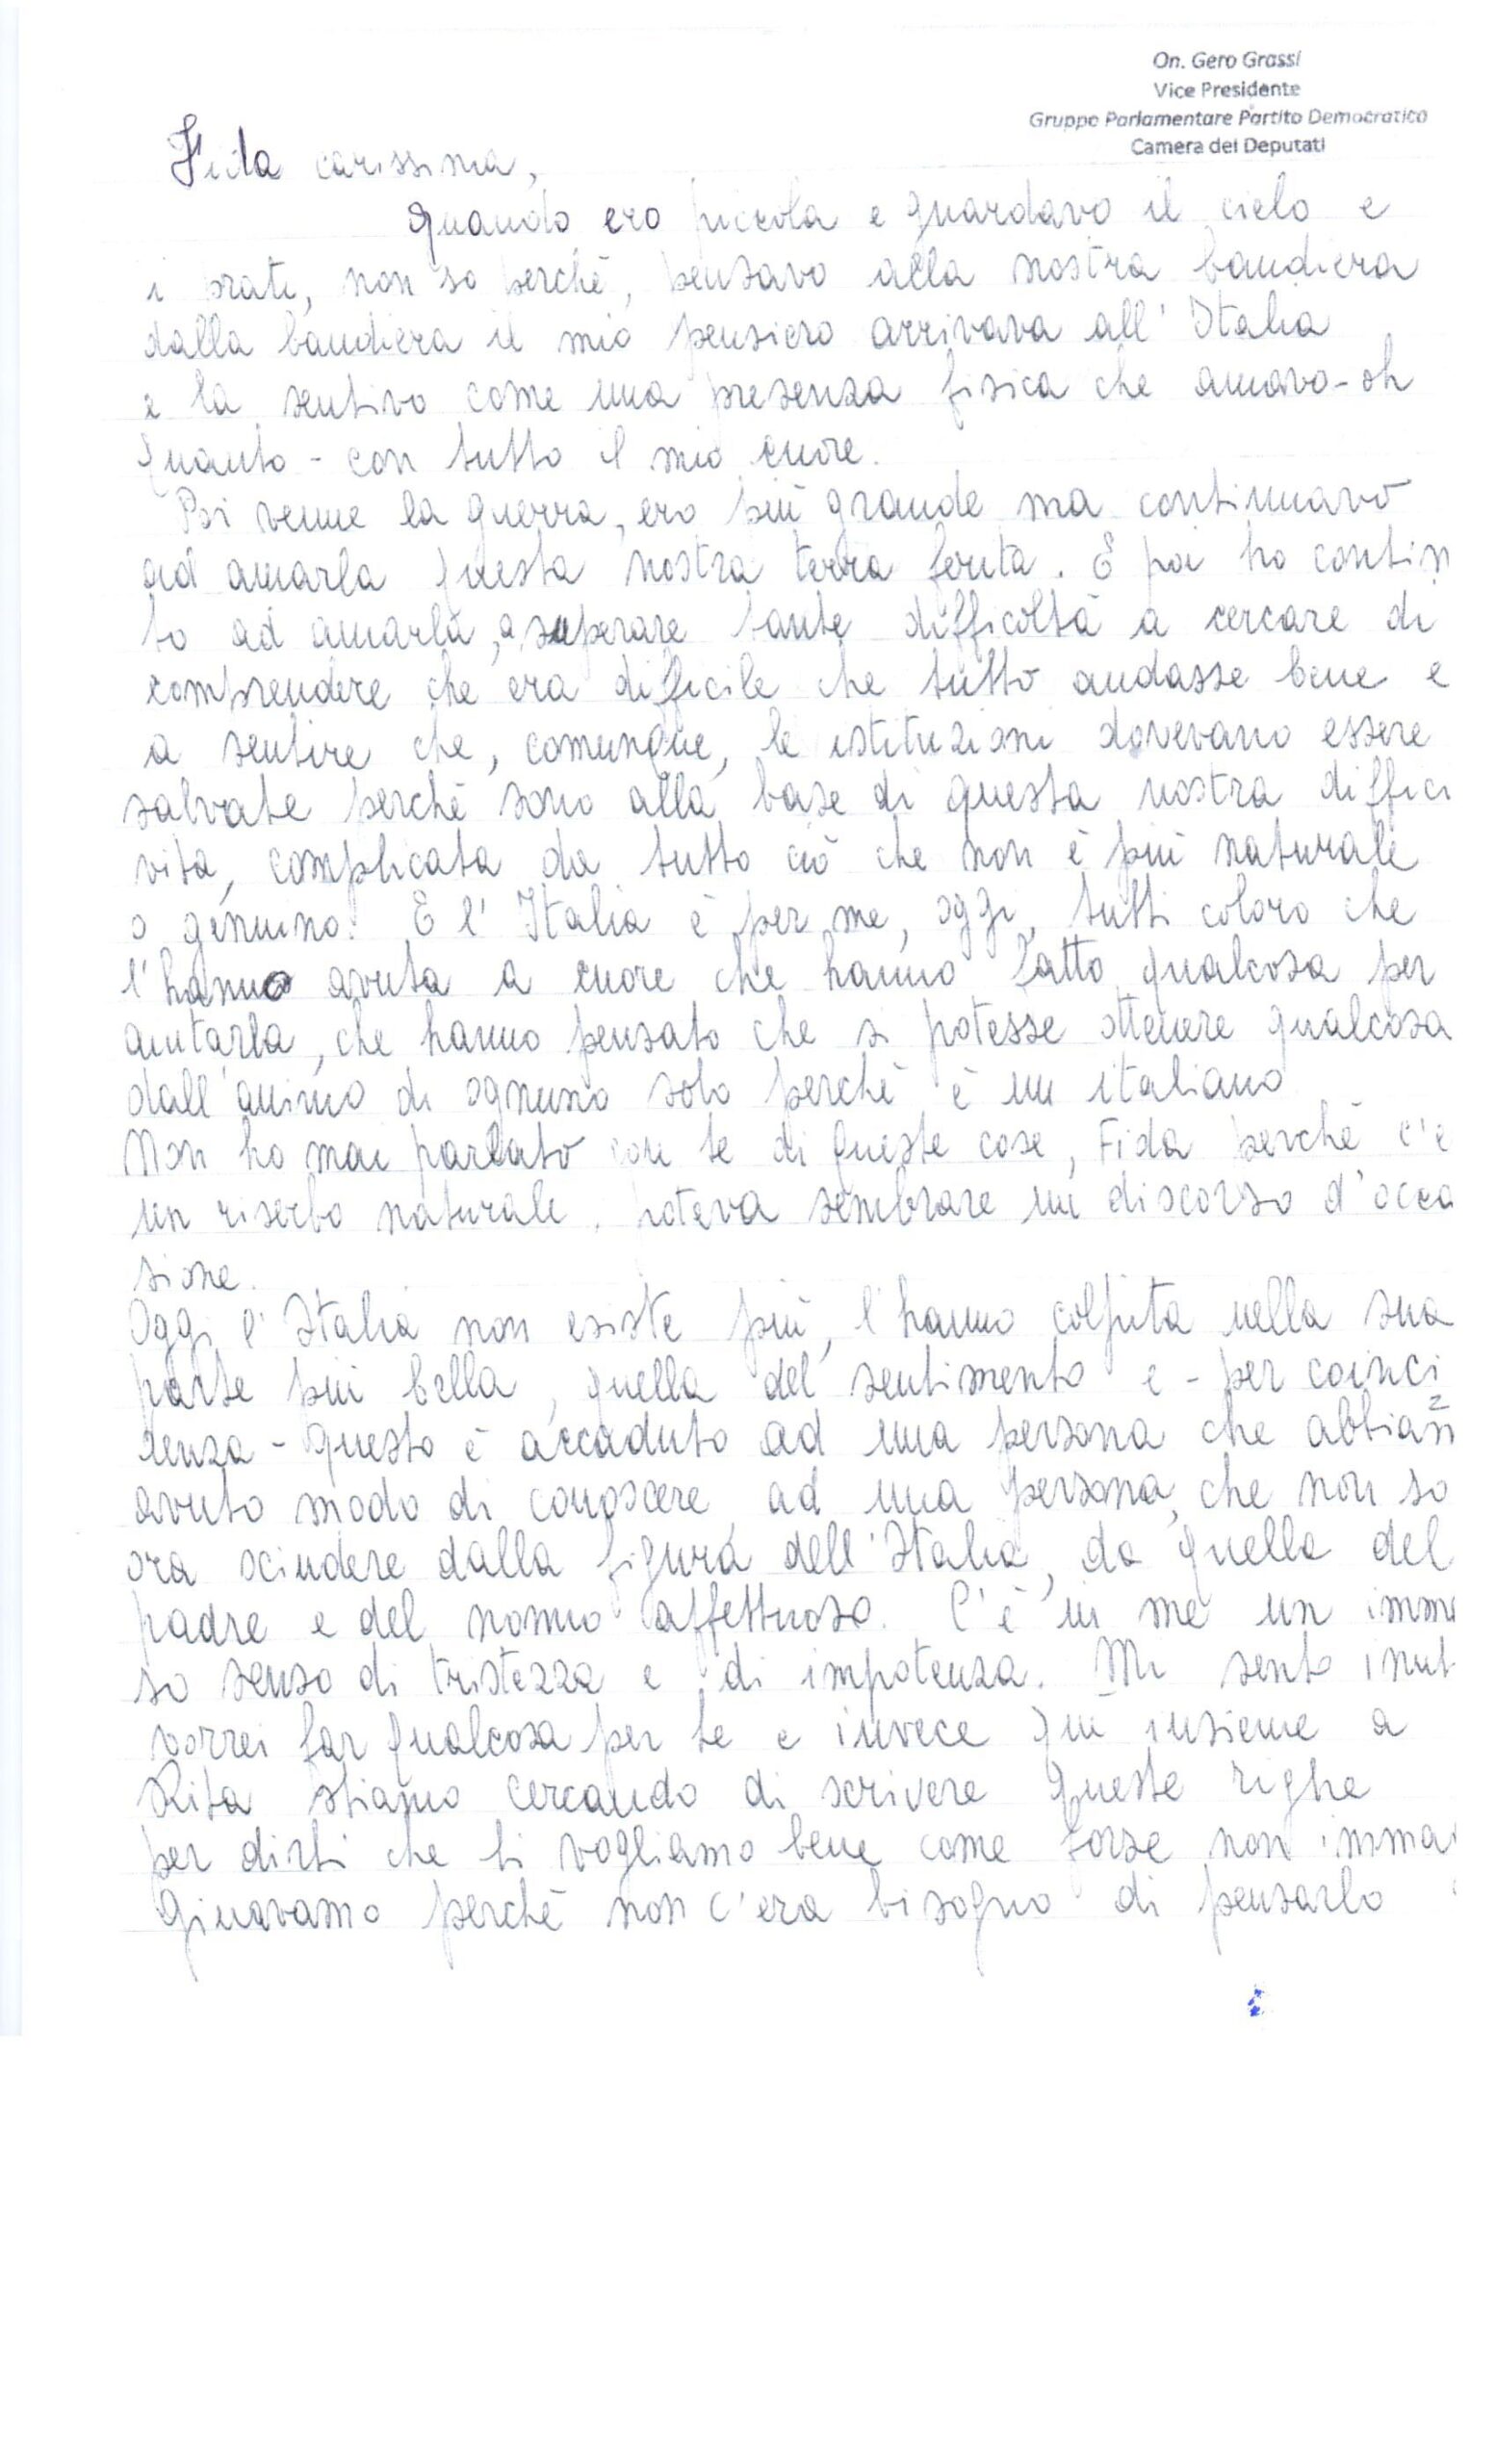 On. Gero Grassi
Vice Presidente
Gruppo Parlamentare Partito Democratico
Camera dei Deputati
Fida carissima,
quando ero piccola e guardavo il cielo e
i prati, non so perchè, pensavo alla nostra bandiera
dalla bandiera il mio pensiero arrivava all'Italia
e la sentivo come una presenza fisica che amavo - oh
quanto - con tutto il mio cuore.
Poi venne la guerra, ero più grande ma continuavo
ad amarla questa nostra terra ferita. E poi ho contin
to ad amarla, a superare tante difficoltà a cercare di
comprendere che era difficile che tutto andasse bene e
a sentire che, comunque, le istituzioni dovevano essere
salvate perchè sono alla base di questa nostra diffici
vita, complicata da tutto ciò che non è più naturale
o genuino. E l'Italia è per me, oggi, tutti coloro che
l'hanno avuta a cuore che hanno fatto qualcosa per
aiutarla, che hanno pensato che si potesse ottenere qualcosa
dall'animo di ognuno solo perchè è un italiano
Non ho mai parlato con te di queste cose, Fida perchè c'è
un riserbo naturale, poteva sembrare un discorso d'occa
sione.
Oggi l'Italia non esiste più, l'hanno colpita nella sua
parte più bella, quella del sentimento e - per coinci
denza - questo è accaduto ad una persona che abbiam
avuto modo di conoscere, ad una persona, che non so
ora scindere dalla figura dell'Italia, da quella del
padre e del nonno affettuoso. C'è in me un imme
so senso di tristezza e di impotenza. Mi sento inut
vorrei far qualcosa per te e invece qui insieme a
Rita stiamo cercando di scrivere queste righe
per dirti che ti vogliamo bene come forse non imma
ginavamo perchè non c'era bisogno di pensarlo